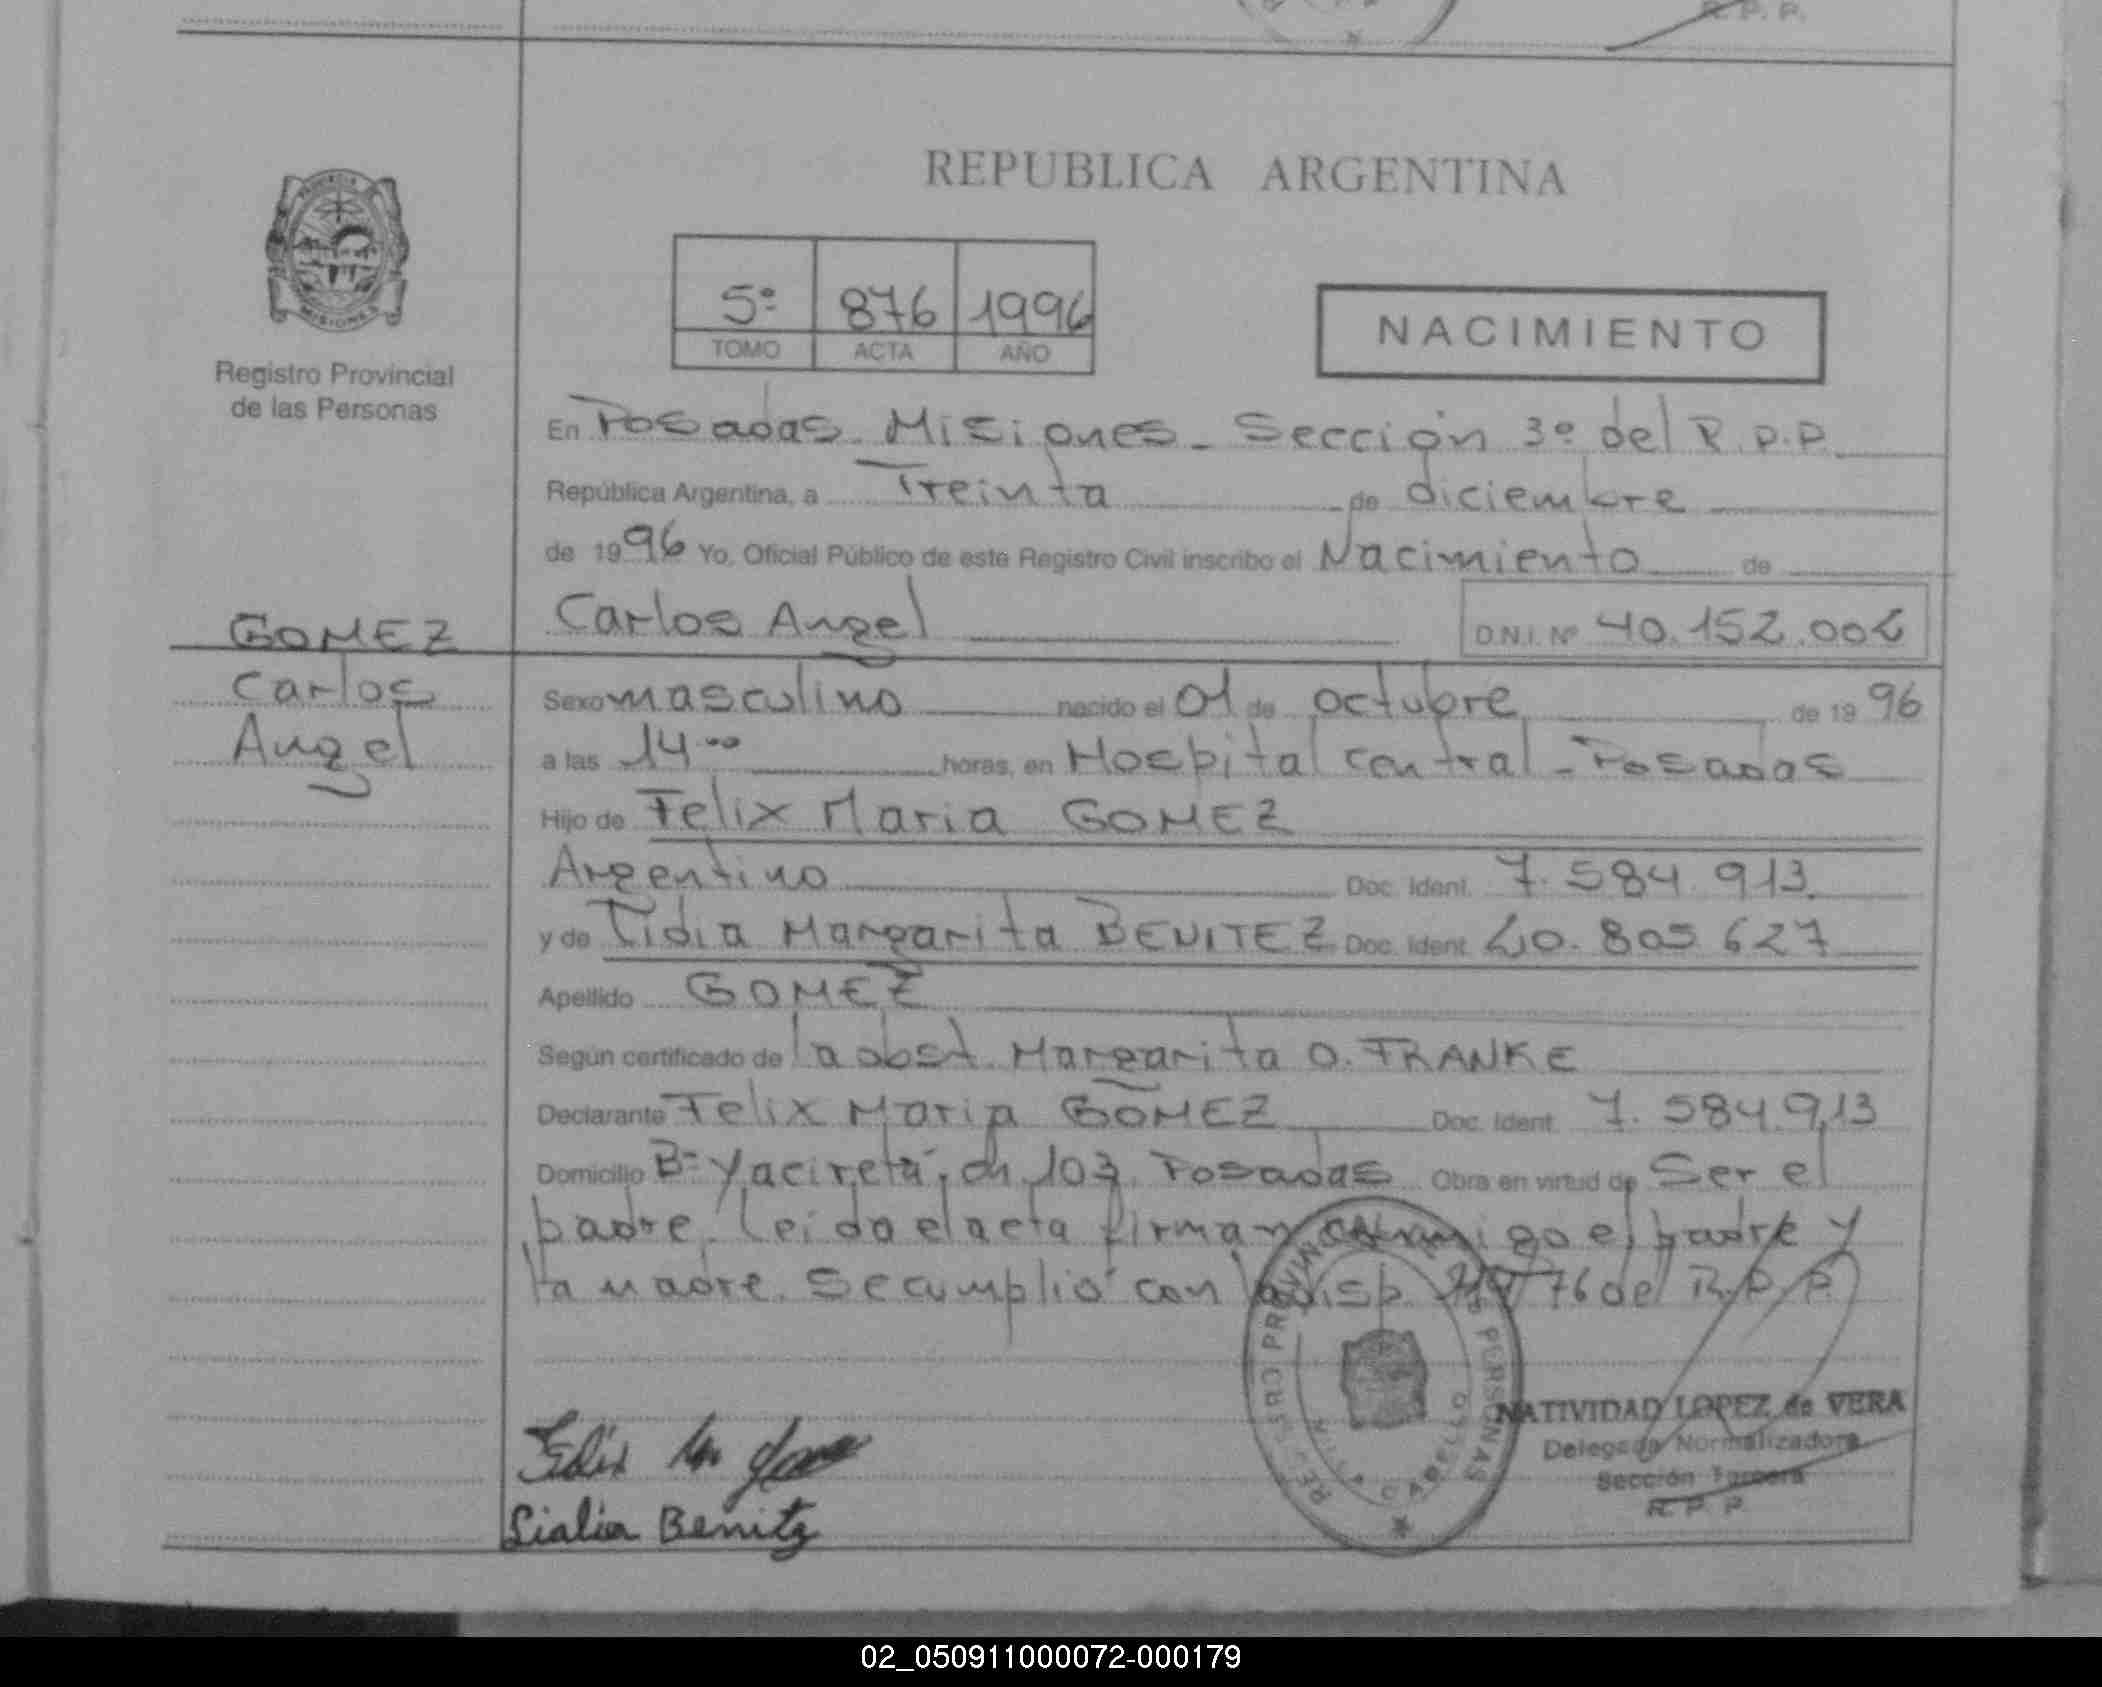 R.P.P.
REPUBLICA ARGENTINA
PROVINCIA
MISIONES
Registro Provincial
de las Personas
5º 876 1996
TOMO ACTA AÑO
NACIMIENTO
En Posadas Misiones - Sección 3º del R.P.P.
República Argentina, a Treinta de diciembre
de 1996 Yo, Oficial Público de este Registro Civil inscribo el Nacimiento de
Carlos Angel D.N.I. Nº 40.152.006
GOMEZ
Carlos
Angel
Sexo masculino nacido el 01 de octubre de 1996
a las 14.00 horas, en Hospital central - Posadas
Hijo de Felix Maria GOMEZ
Argentino Doc. Ident. 7.584.913.
y de Lidia Margarita BENITEZ Doc. Ident. 20.805.627
Apellido GOMEZ
Según certificado de la obst. Margarita O. FRANKE
Declarante Felix Maria GOMEZ Doc. Ident. 7.584.913
Domicilio Bº Yacireta, ch 103. Posadas Obra en virtud de Ser el
padre. Leida el acta firman conmigo el padre y
la madre. Se cumplió con la disp. 76 del R.P.P.
Felix
Benitz
REGISTRO PROVINCIAL DE LAS PERSONAS
NATIVIDAD LOPEZ de VERA
Delegada Normalizadora
Sección Tercera
R.P.P.
02_050911000072-000179